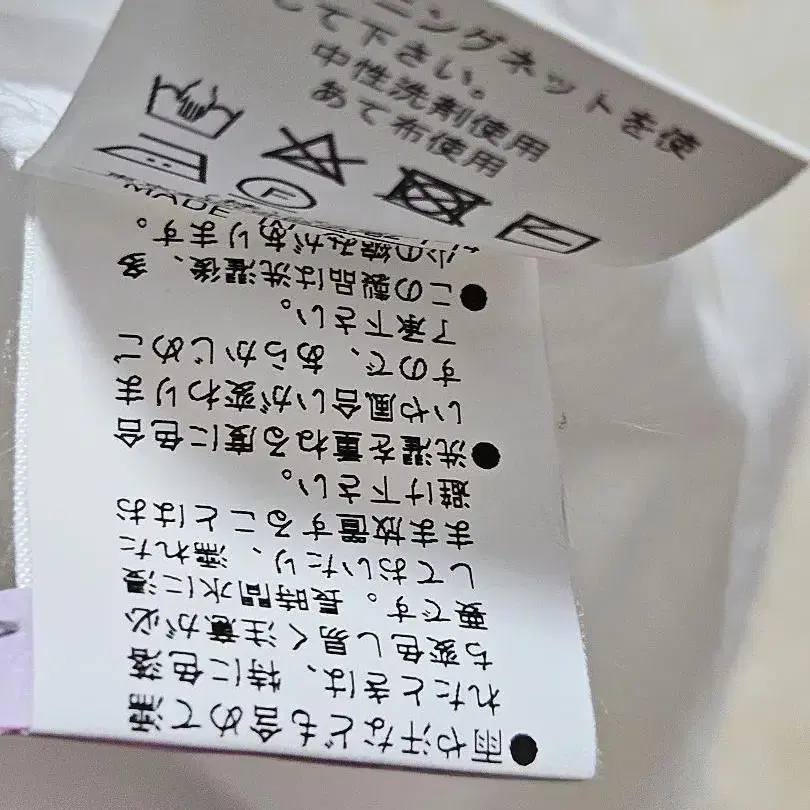 ニングネットを使
して下さい。
中性洗剤使用
あて布使用
F
●雨や汗なども含めて濡
れたときは、特に色落
ち変色し易く注意が必
要です。長時間水に浸
しておいたり、濡れた
まま放置することはお
避け下さい。
●洗濯を重ねる度に色合
いや風合いが変わりま
すので、あらかじめご
了承下さい。
●この製品は洗濯後、多
少の縮みがあります。
MADE